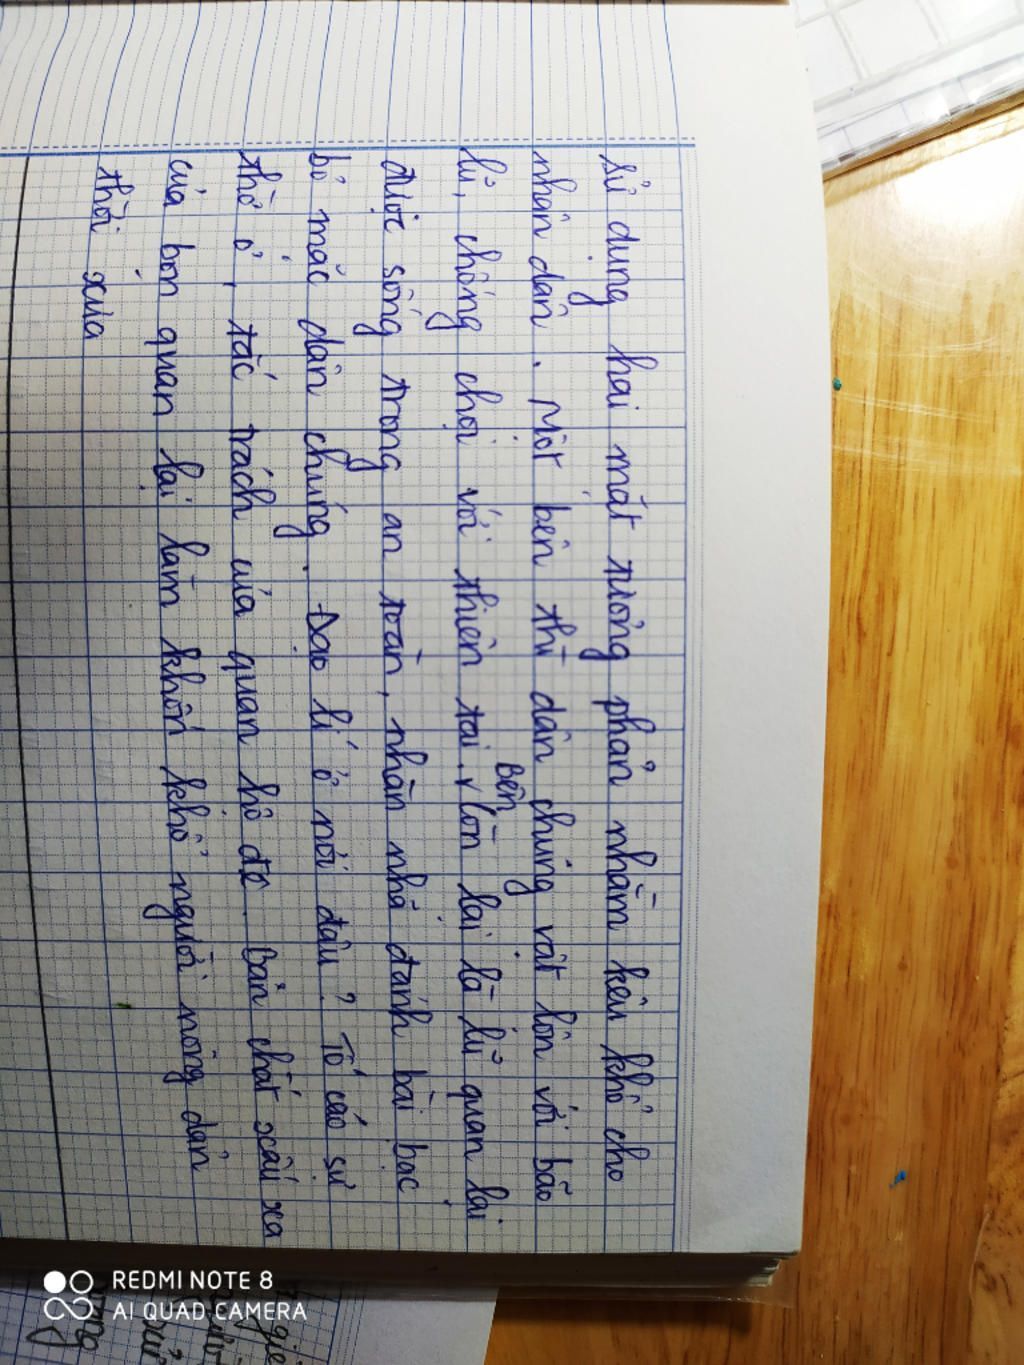 sử dụng hai mặt tương phản nhằm kêu khổ cho
nhân dân. Một bên thì dân chúng vật lộn với bão
lũ, chống chọi với thiên tai. Bên còn lại là lũ quan lại
được sống trong an toàn, nhàn nhã đánh bài bạc
bỏ mặc dân chúng. Đạo lí ở nơi đâu? Tố cáo sự
thờ ơ, tắc trách của quan hộ đê. bản chất xấu xa
của bọn quan lại làm khốn khổ người nông dân
thời xưa
REDMI NOTE 8
AI QUAD CAMERA